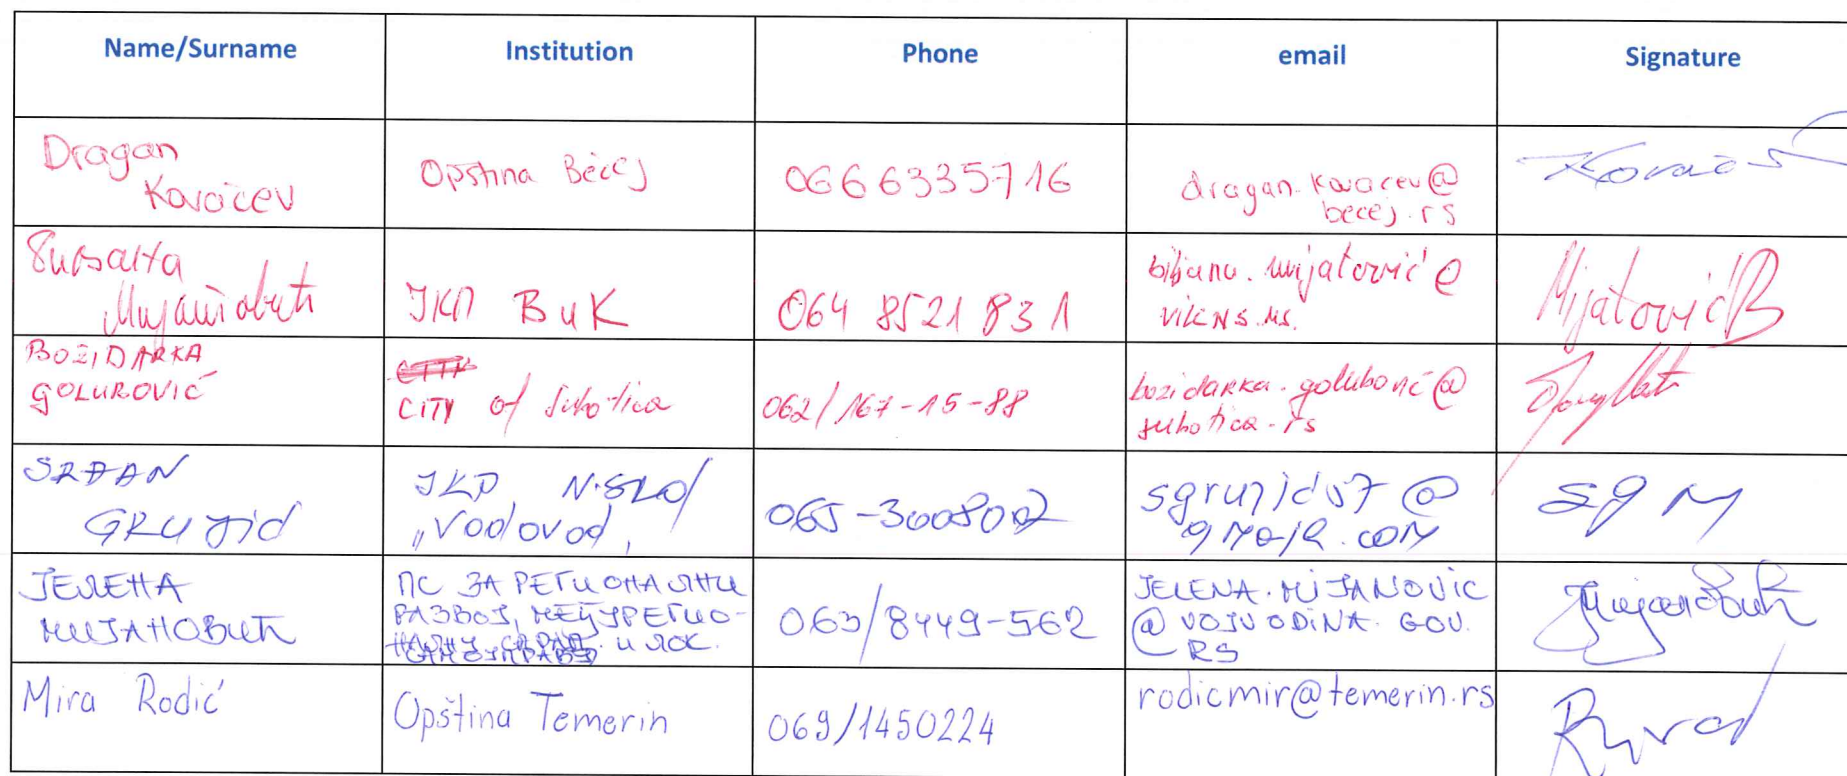 Name/Surname Institution Phone email Signature
Dragan
Kovačev
Opština Bečej
0666335716
dragan.kovacev@
becej.rs
Биљана
Мијатовић
ЈКП ВиК
064 8521 831
biljana.mijatović@
vikns.rs.
Mijatović B
BOŽIDARKA
GOLUBOVIĆ
CITY of Subotica
062/167-15-88
bozidarka.golubović@
subotica.rs
SRĐAN
GRUJIĆ
JKP
"Vodovod"
065-3008002
sgrujic57@
gmail.com
ЈЕЛЕНА
МИЈАНОВИЋ
ПС ЗА РЕГИОНАЛНИ
РАЗВОЈ, МЕЂУРЕГИО-
НАЛНУ САРАД. И ЛОК.
САМОУПРАВУ
063/8449-562
JELENA.MIJANOVIC
@VOJVODINA.GOV.
RS
Мијановић
Mira Rodić
Opština Temerin
069/1450224
rodicmir@temerin.rs